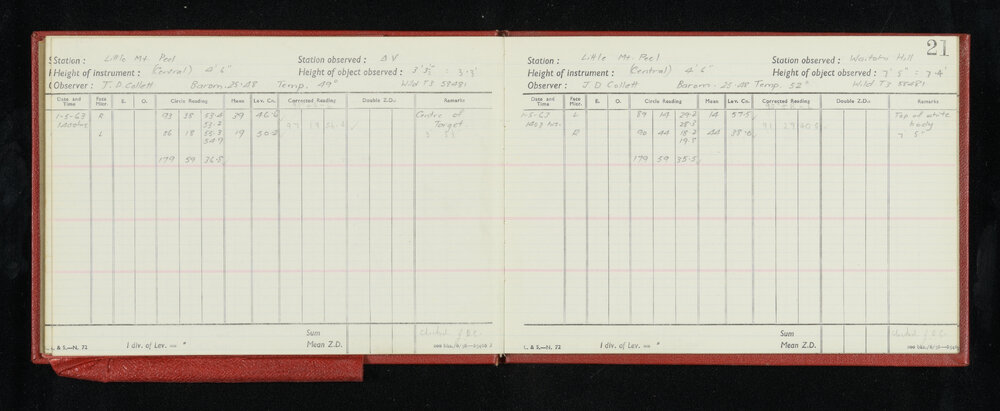 Station : Little Mt Peel Station observed : Δ V
Height of instrument : (Central) 4' 6" Height of object observed : 3' 3½" : 3·3'
Observer : J. D. Collett Barom. 25·48 Temp. 49° Wild T3 58481
Date and Time Face Micr. E. O. Circle Reading Mean Lev. Cn. Corrected Reading Double Z.Ds: Remarks
1-5-63 R 93 38 53·4 39 46·6 Centre of
1400 hrs 53·2 Target
L 86 18 55·3 19 50·2
54·9
179 59 36·5
Sum Checked
L. & S.—N. 72 1 div. of Lev. = " Mean Z.D.
21
Station : Little Mt. Peel Station observed : Waitohi Hill
Height of instrument : (Central) 4' 6" Height of object observed : 7' 5" : 7·4'
Observer : J D Collett Barom. 25·48 Temp. 52° Wild T3 58481
Date and Time Face Micr. E. O. Circle Reading Mean Lev. Cn. Corrected Reading Double Z.Ds: Remarks
1-5-63 L 89 14 29·2 14 57·5 Top of white
1403 hrs. 28·3 body
R 90 44 18·2 44 38·0 7' 5"
19·5
179 59 35·5
Sum Checked
L. & S.—N. 72 1 div. of Lev. = " Mean Z.D.